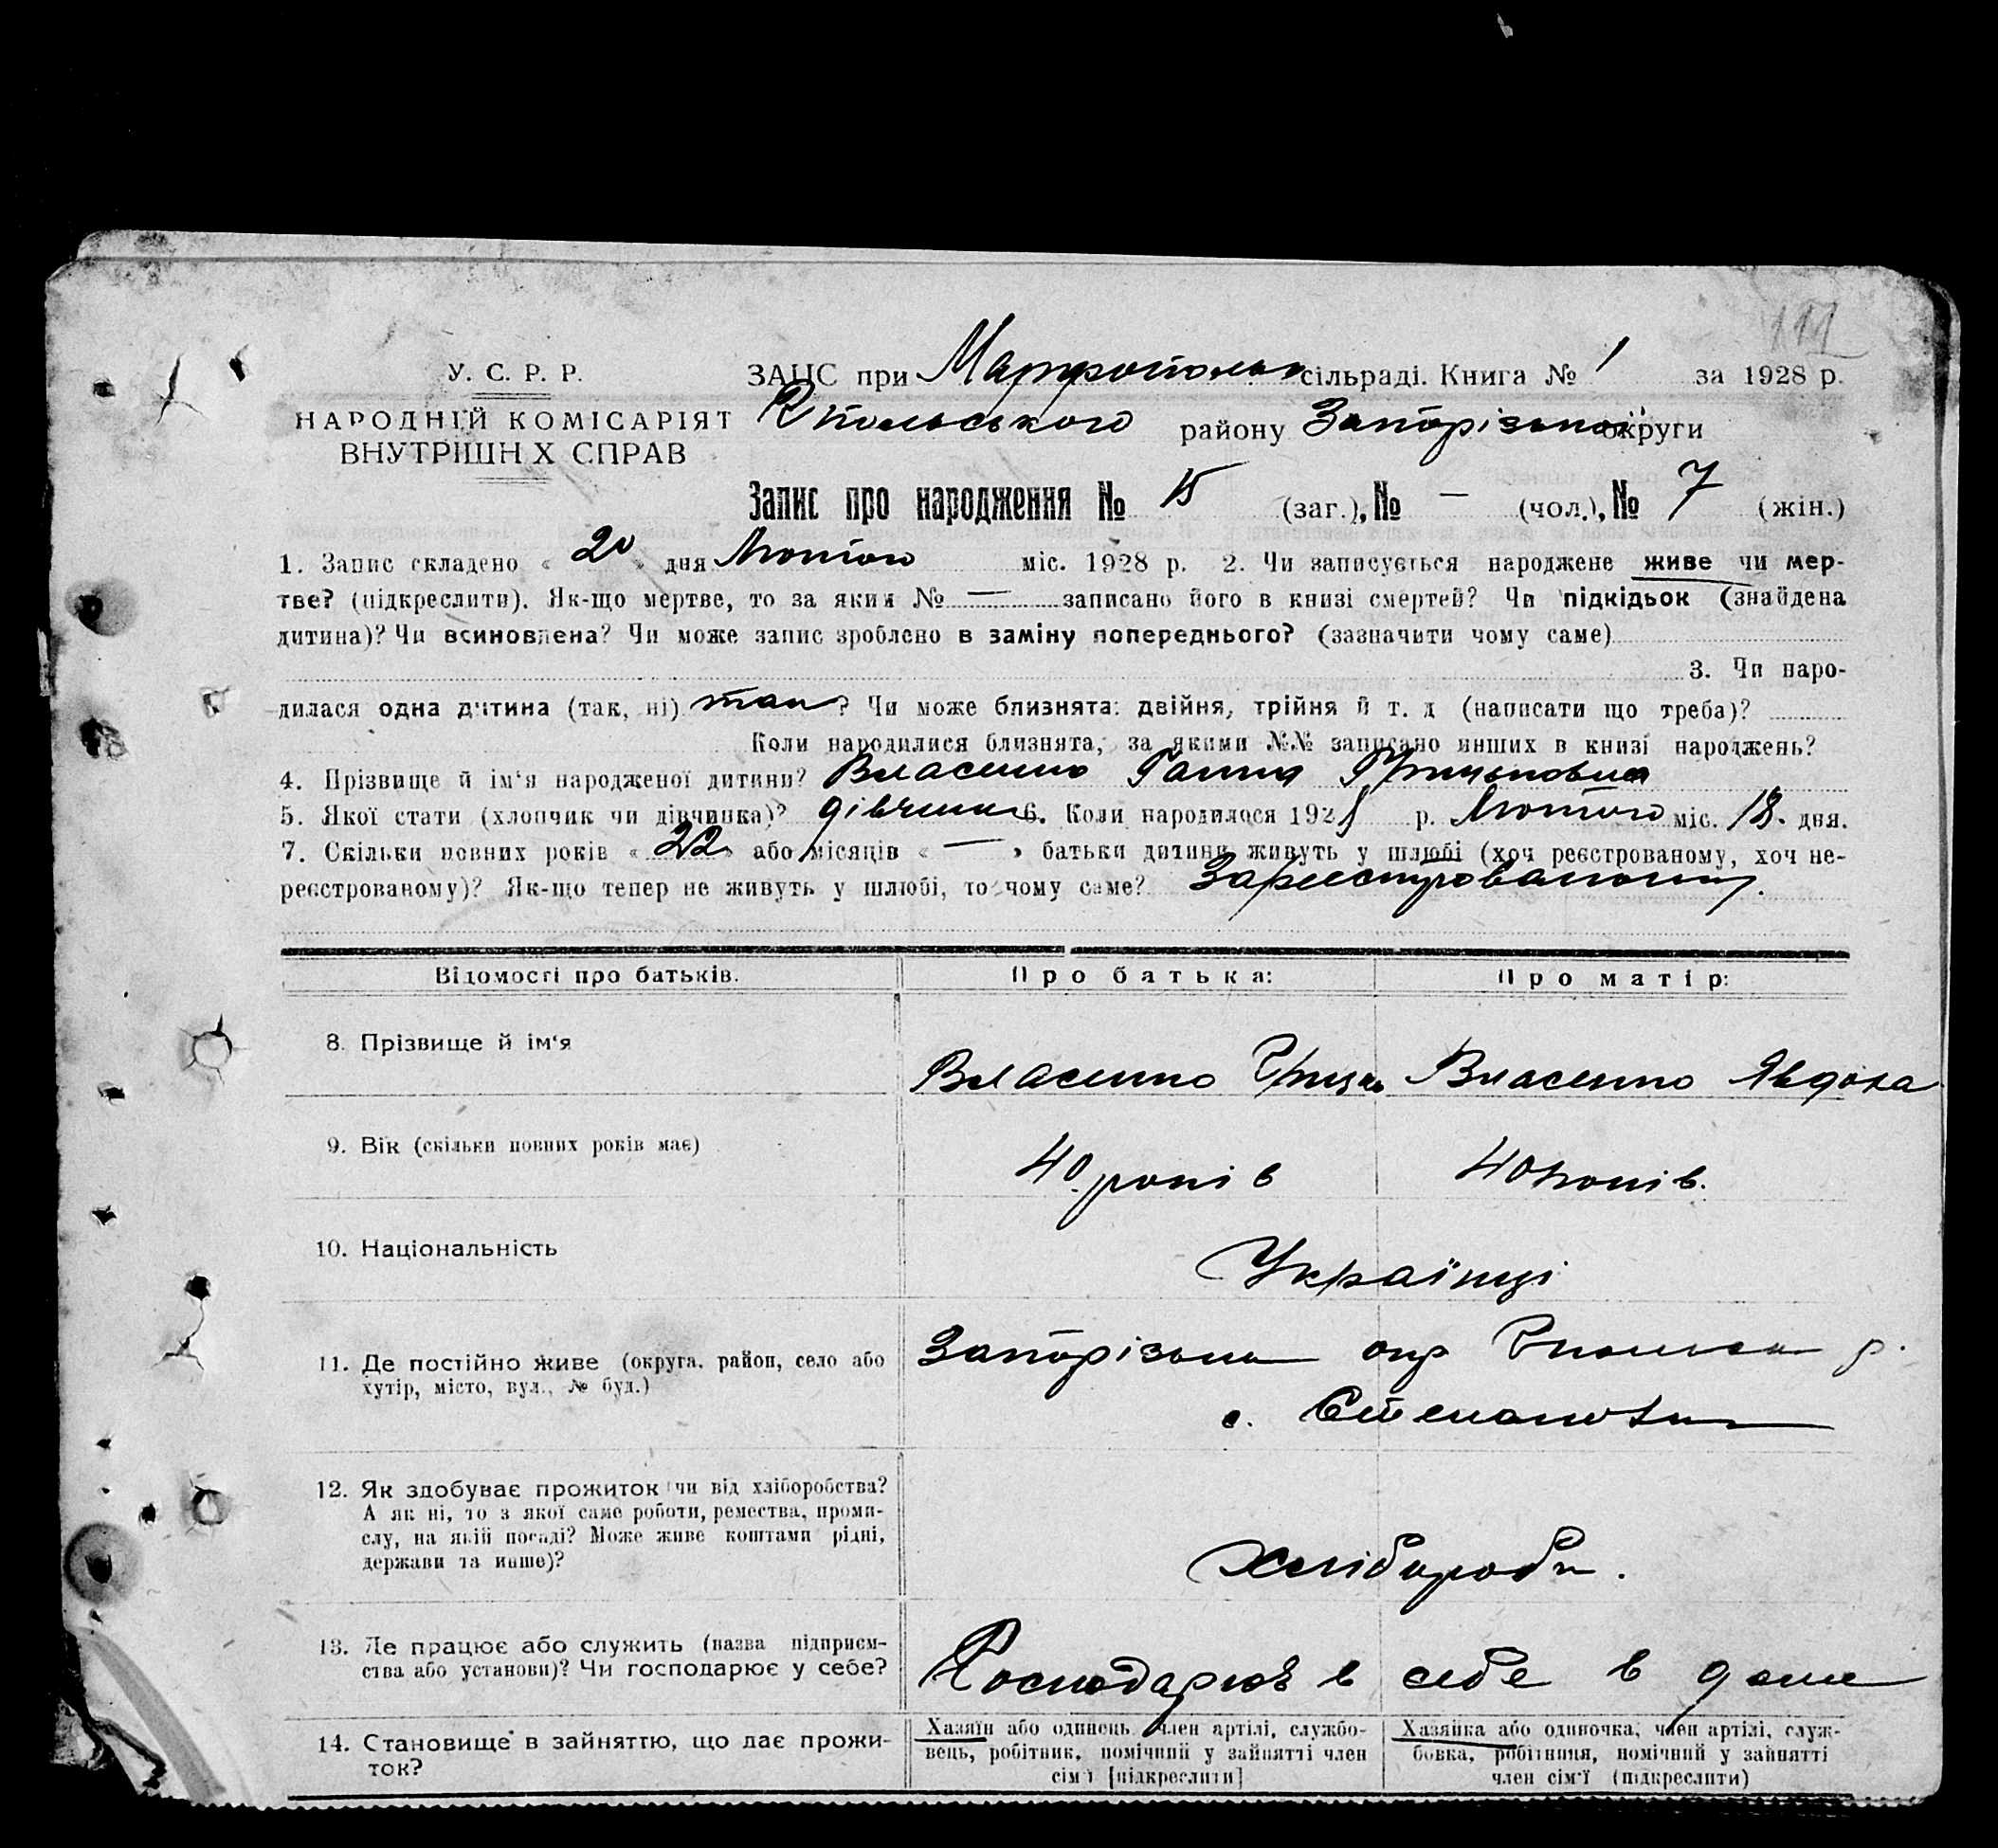 111
У. С. Р. Р.
ЗАЦС при Марфопольск сільраді. Книга № 1 за 1928 р.
НАРОДНІЙ КОМІСАРІЯТ
ВНУТРІШН Х СПРАВ
Г-Польського району Запорізької округи
Запис про народження № 15 (заг.), № — (чол.), № 7 (жін.)
1. Запис складено « 20 » дня Лютого міс. 1928 р. 2. Чи записується народжене живе чи мер-
тве? (підкреслити). Як-що мертве, то за яким № — записано його в книзі смертей? Чи підкідьок (знайдена
дитина)? Чи всиновлена? Чи може запис зроблено в заміну попереднього? (зазначити чому саме)
3. Чи наро-
дилася одна дитина (так, ні) так? Чи може близнята: двійня, трійня й т. д (написати що треба)?
Коли народилися близнята, за якими №№ записано инших в книзі народжень?
4. Прізвище й ім‘я народженої дитини? Власенко Ганна Грицьковна
5. Якої стати (хлопчик чи дівчинка)? дівчинка 6. Коли народилося 1928 р. Лютого міс. 18. дня.
7. Скільки повних років « 22 » або місяців « — » батьки дитини живуть у шлюбі (хоч реєстрованому, хоч не-
реєстрованому)? Як-що тепер не живуть у шлюбі, то чому саме? Зареєстрованому.
Відомості про батьків.
Про батька:
Про матір:
8. Прізвище й ім‘я
Власенко Грицько
Власенко Явдоха
9. Вік (скільки повних років має)
40 років
40 років.
10. Національність
Українці
11. Де постійно живе (округа, район, село або
хутір, місто, вул., № буд.)
Запорізька окр Г-польськ р.
с. Степановка
12. Як здобуває прожиток (чи від хліборобства?
А як ні, то з якої саме роботи, ремества, проми-
слу, на якій посаді? Може живе коштами рідні,
держави та инше)?
Хлібороби.
13. Де працює або служить (назва підприєм-
ства або установи)? Чи господарює у себе?
Господарює в себе в доме
14. Становище в зайняттю, що дає прожи-
ток?
Хазяїн або одинець, член артілі, службо-
вець, робітник, помічний у зайнятті член
сім‘ї [підкреслити]
Хазяйка або одиночка, член артілі, служ-
бовка, робітниця, помічний у зайнятті
член сім‘ї (підкреслити)